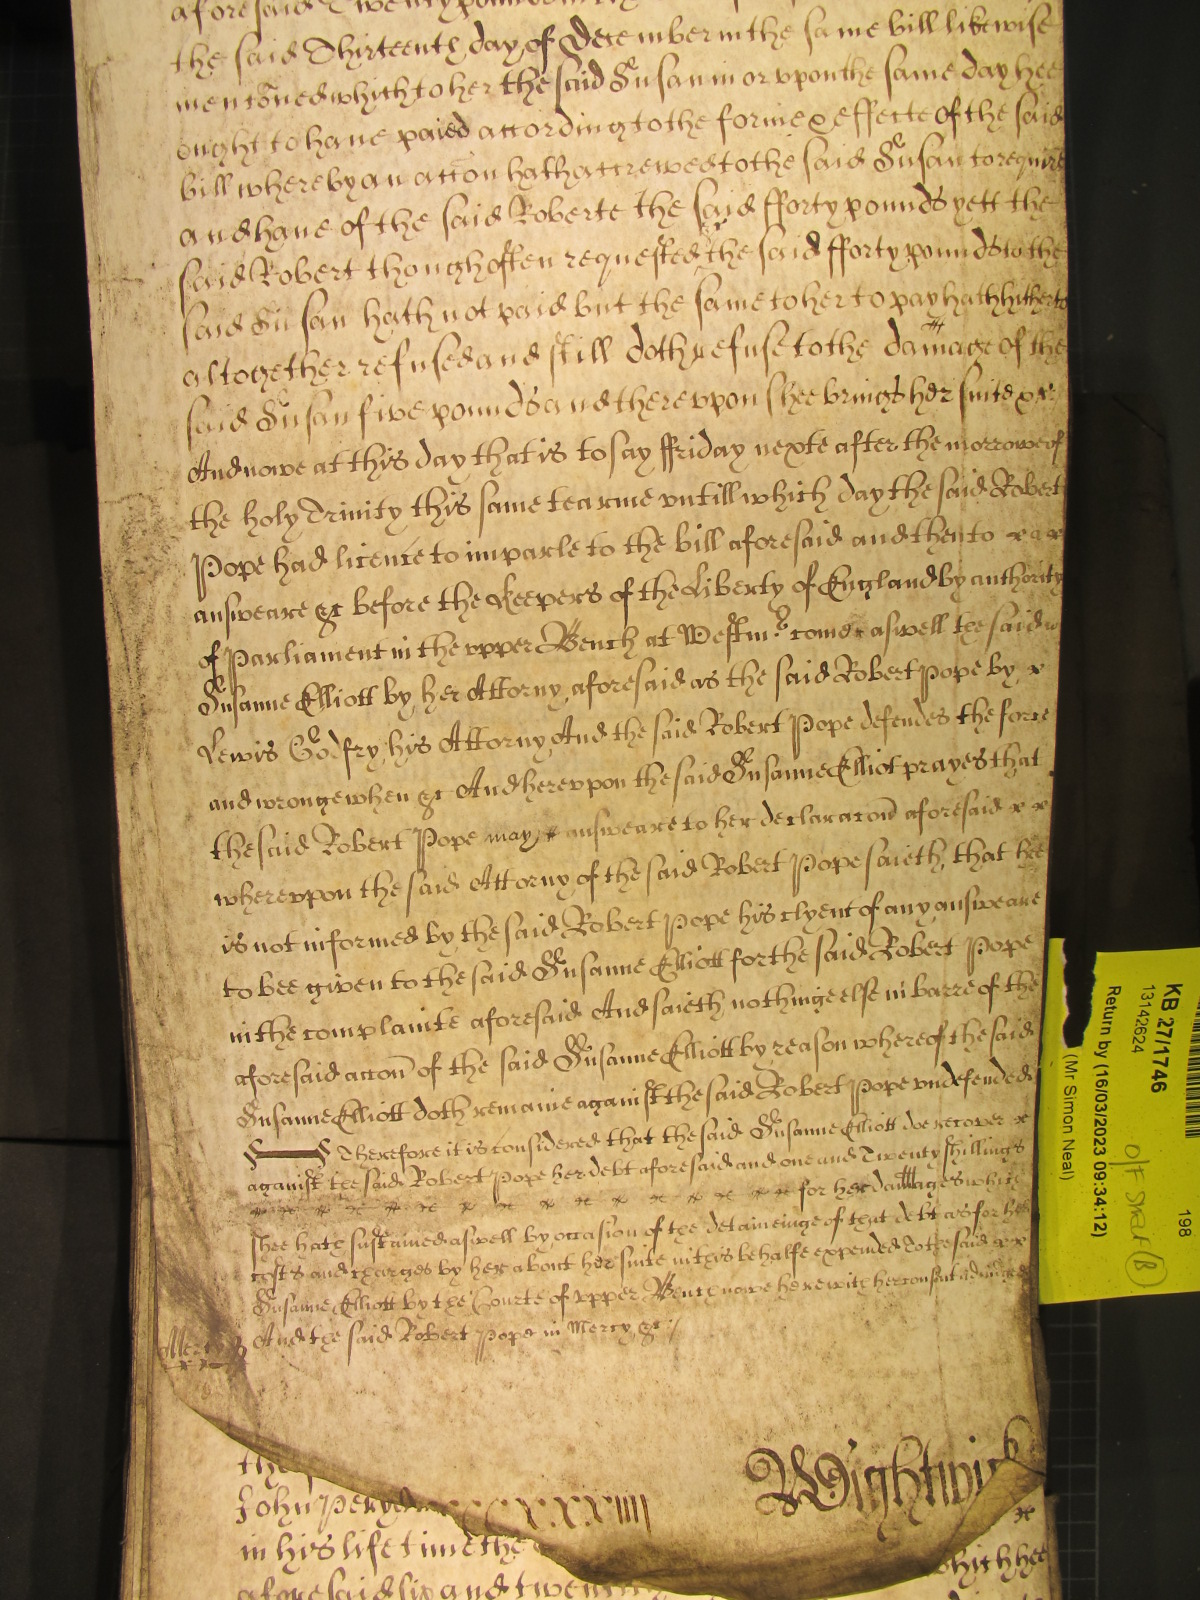 aforesaid Twenty pounds
the said Thirteenth day of December in the same bill likewise
menc̄oned which to her the said Susan in or vpon the same day hee
ought to haue paied according to the forme & effecte of the said
bill whereby an acc̄on hath accrewed to the said Susan to require
and haue of the said Roberte the said fforty pounds yett the
said Robert though often requested the said fforty pounds to the
said Susan hath not paid but the same to her to pay hath hitherto
altogether refused and still doth refuse to the damage of the
said Susan five pounds and therevpon shee brings her suite &c
And nowe at this day that is to say ffriday nexte after the morrowe of
the holy Trinity this same tearme vntill which day the said Robert
Pope had licence to imparle to the bill aforesaid and then to
answeare &c before the Keepers of the Liberty of England by authority
of Parliament in the vpper Bench at Westm.r come aswell the said
Susanne Elliott by her Attorny aforesaid as the said Robert Pope by
Lewis Godfry his Attorny And the said Robert Pope defendes the force
and wronge when &c And herevpon the said Susanne Elliot prayes that
the said Robert Pope may answeare to her declarac̄on aforesaid
wherevpon the said Attorny of the said Robert Pope saieth that hee
is not informed by the said Robert Pope his clyent of any answeare
to bee given to the said Susanne Elliott for the said Robert Pope
in the complainte aforesaid And saieth nothinge else in barre of the
aforesaid acc̄on of the said Susanne Elliott by reason whereof the said
Susanne Elliott doth remaine against the said Robert Pope vndefended
Therefore it is considered that the said Susanne Elliott doe recover
against the said Robert Pope her debt aforesaid and one and Twenty shillings
for her damages which
shee hath sustained aswell by occasion of the detaineinge of that debt as for her
costs and charges by her about her suite in this behalfe expended to the said
Susanne Elliott by the Courte of vpper Bench nowe here with her consent adiudged
And the said Robert Pope in Mercy &c
Mercy
Wightwick
the
John Per CCCXXXIIII
in his life time the
which hee
aforesaid six and twenty
KB 27/1746
13142624
198
O/F SHELF (B)
Return by (16/03/2023 09:34:12)
(Mr Simon Neal)